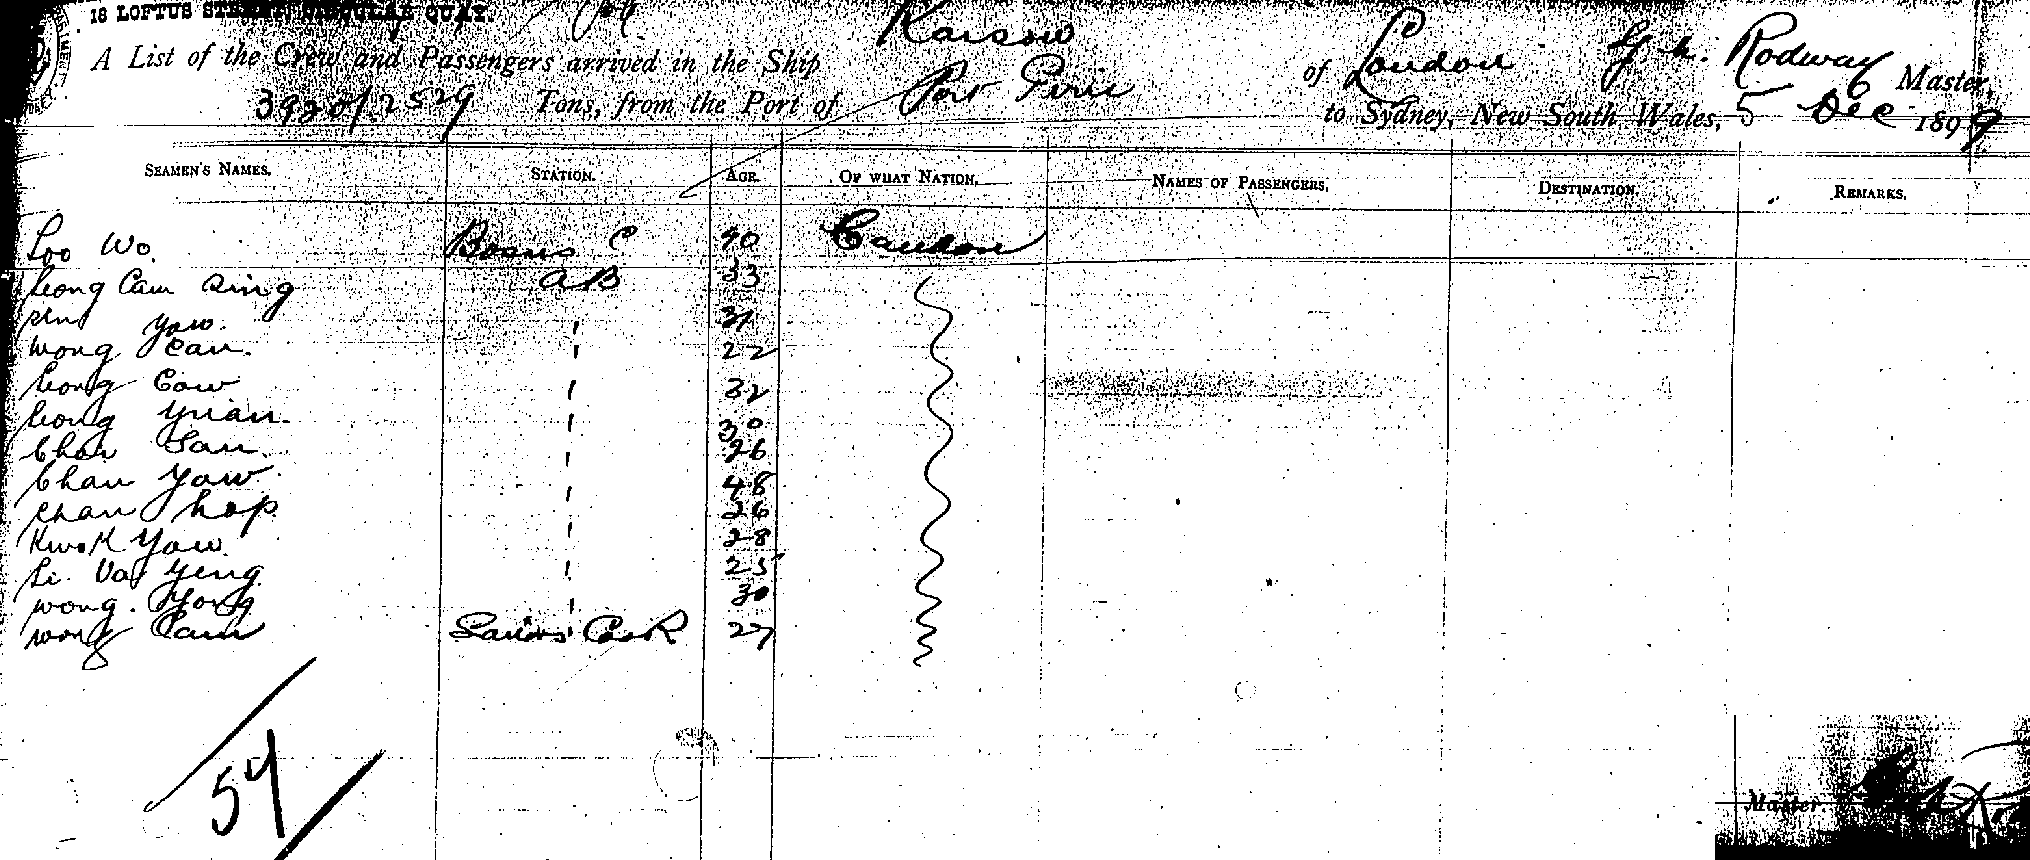 18 LOFTUS STREET, CIRCULAR QUAY.
A List of the Crew and Passengers arrived in the Ship Kaisow of London G. h. Rodway Master,
3920/2529 Tons, from the Port of Port Pirie to Sydney, New South Wales, 5 Dec 1899
SEAMEN'S NAMES. STATION. AGE. OF WHAT NATION. NAMES OF PASSENGERS. DESTINATION. REMARKS.
Loo Wo. Bosns 40 Canton
Leong Cam Sing AB 33
Yaw. 31
Wong Can. 22
Leong Cow 32
Leong Yuan. 30
Chan San. 26
Chan Yaw. 48
Chan hop 26
Kwok Yaw. 28
Li Va Ying 25
Wong. Yong 30
Wong Cam Sailors Cook 27
54
Master.